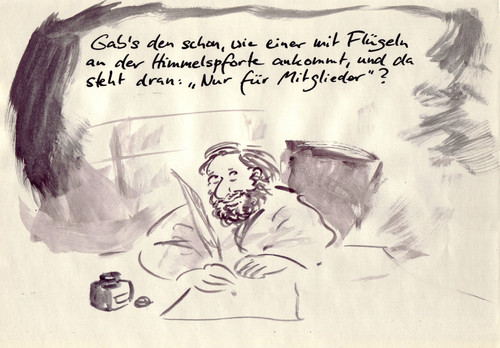 Gab's den schon, wie einer mit Flügeln
an der Himmelspforte ankommt, und da
steht dran: „Nur für Mitglieder"?